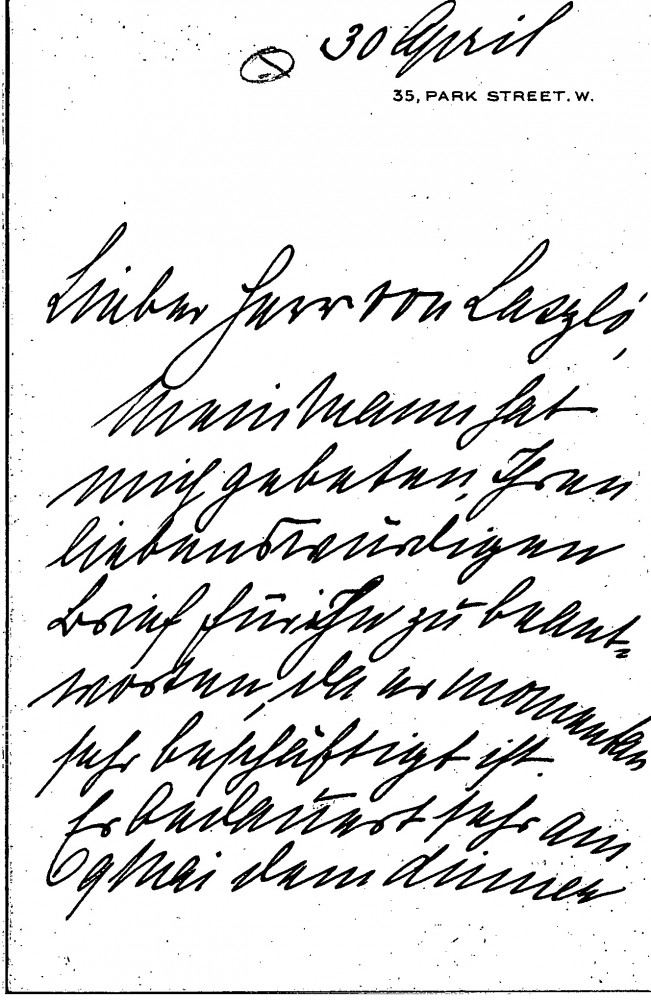 30 April
35, PARK STREET. W.
Lieber Herr von László,
Mein Mann hat
mich gebeten, Ihren
liebenswürdigen
Brief für ihn zu beant-
worten, da er momentan
sehr beschäftigt ist.
Er bedauert sehr am
9 Mai dem dinner